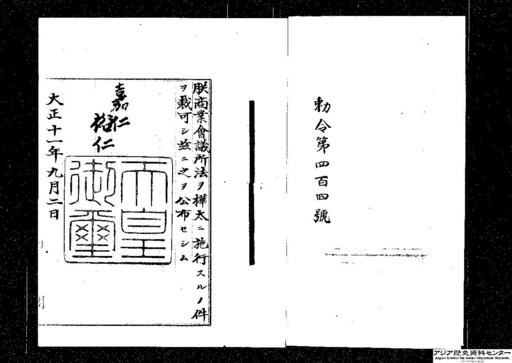 勅令第四百四號
朕商業會議所法ヲ樺太ニ施行スルノ件
ヲ裁可シ玆ニ之ヲ公布セシム
嘉仁
裕仁
天皇
御璽
大正十一年九月二日
アジア歴史資料センター
Japan Center for Asian Historical Records